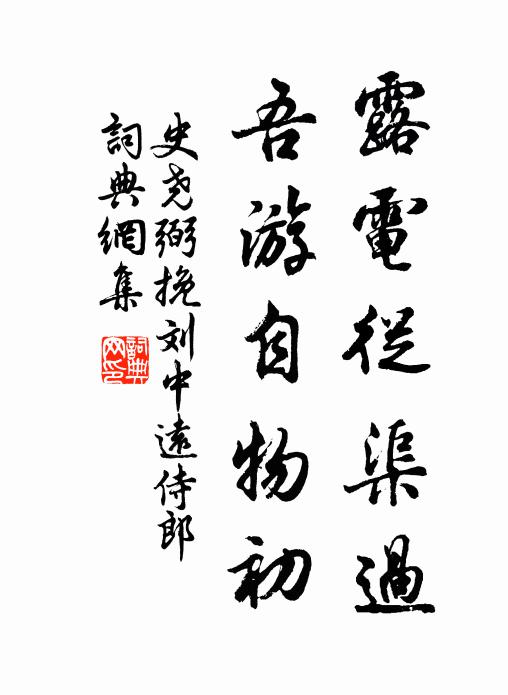 露電從渠過
吾游自物初
史尧弼挽刘中遠侍郎
詞典網集
詞典网印